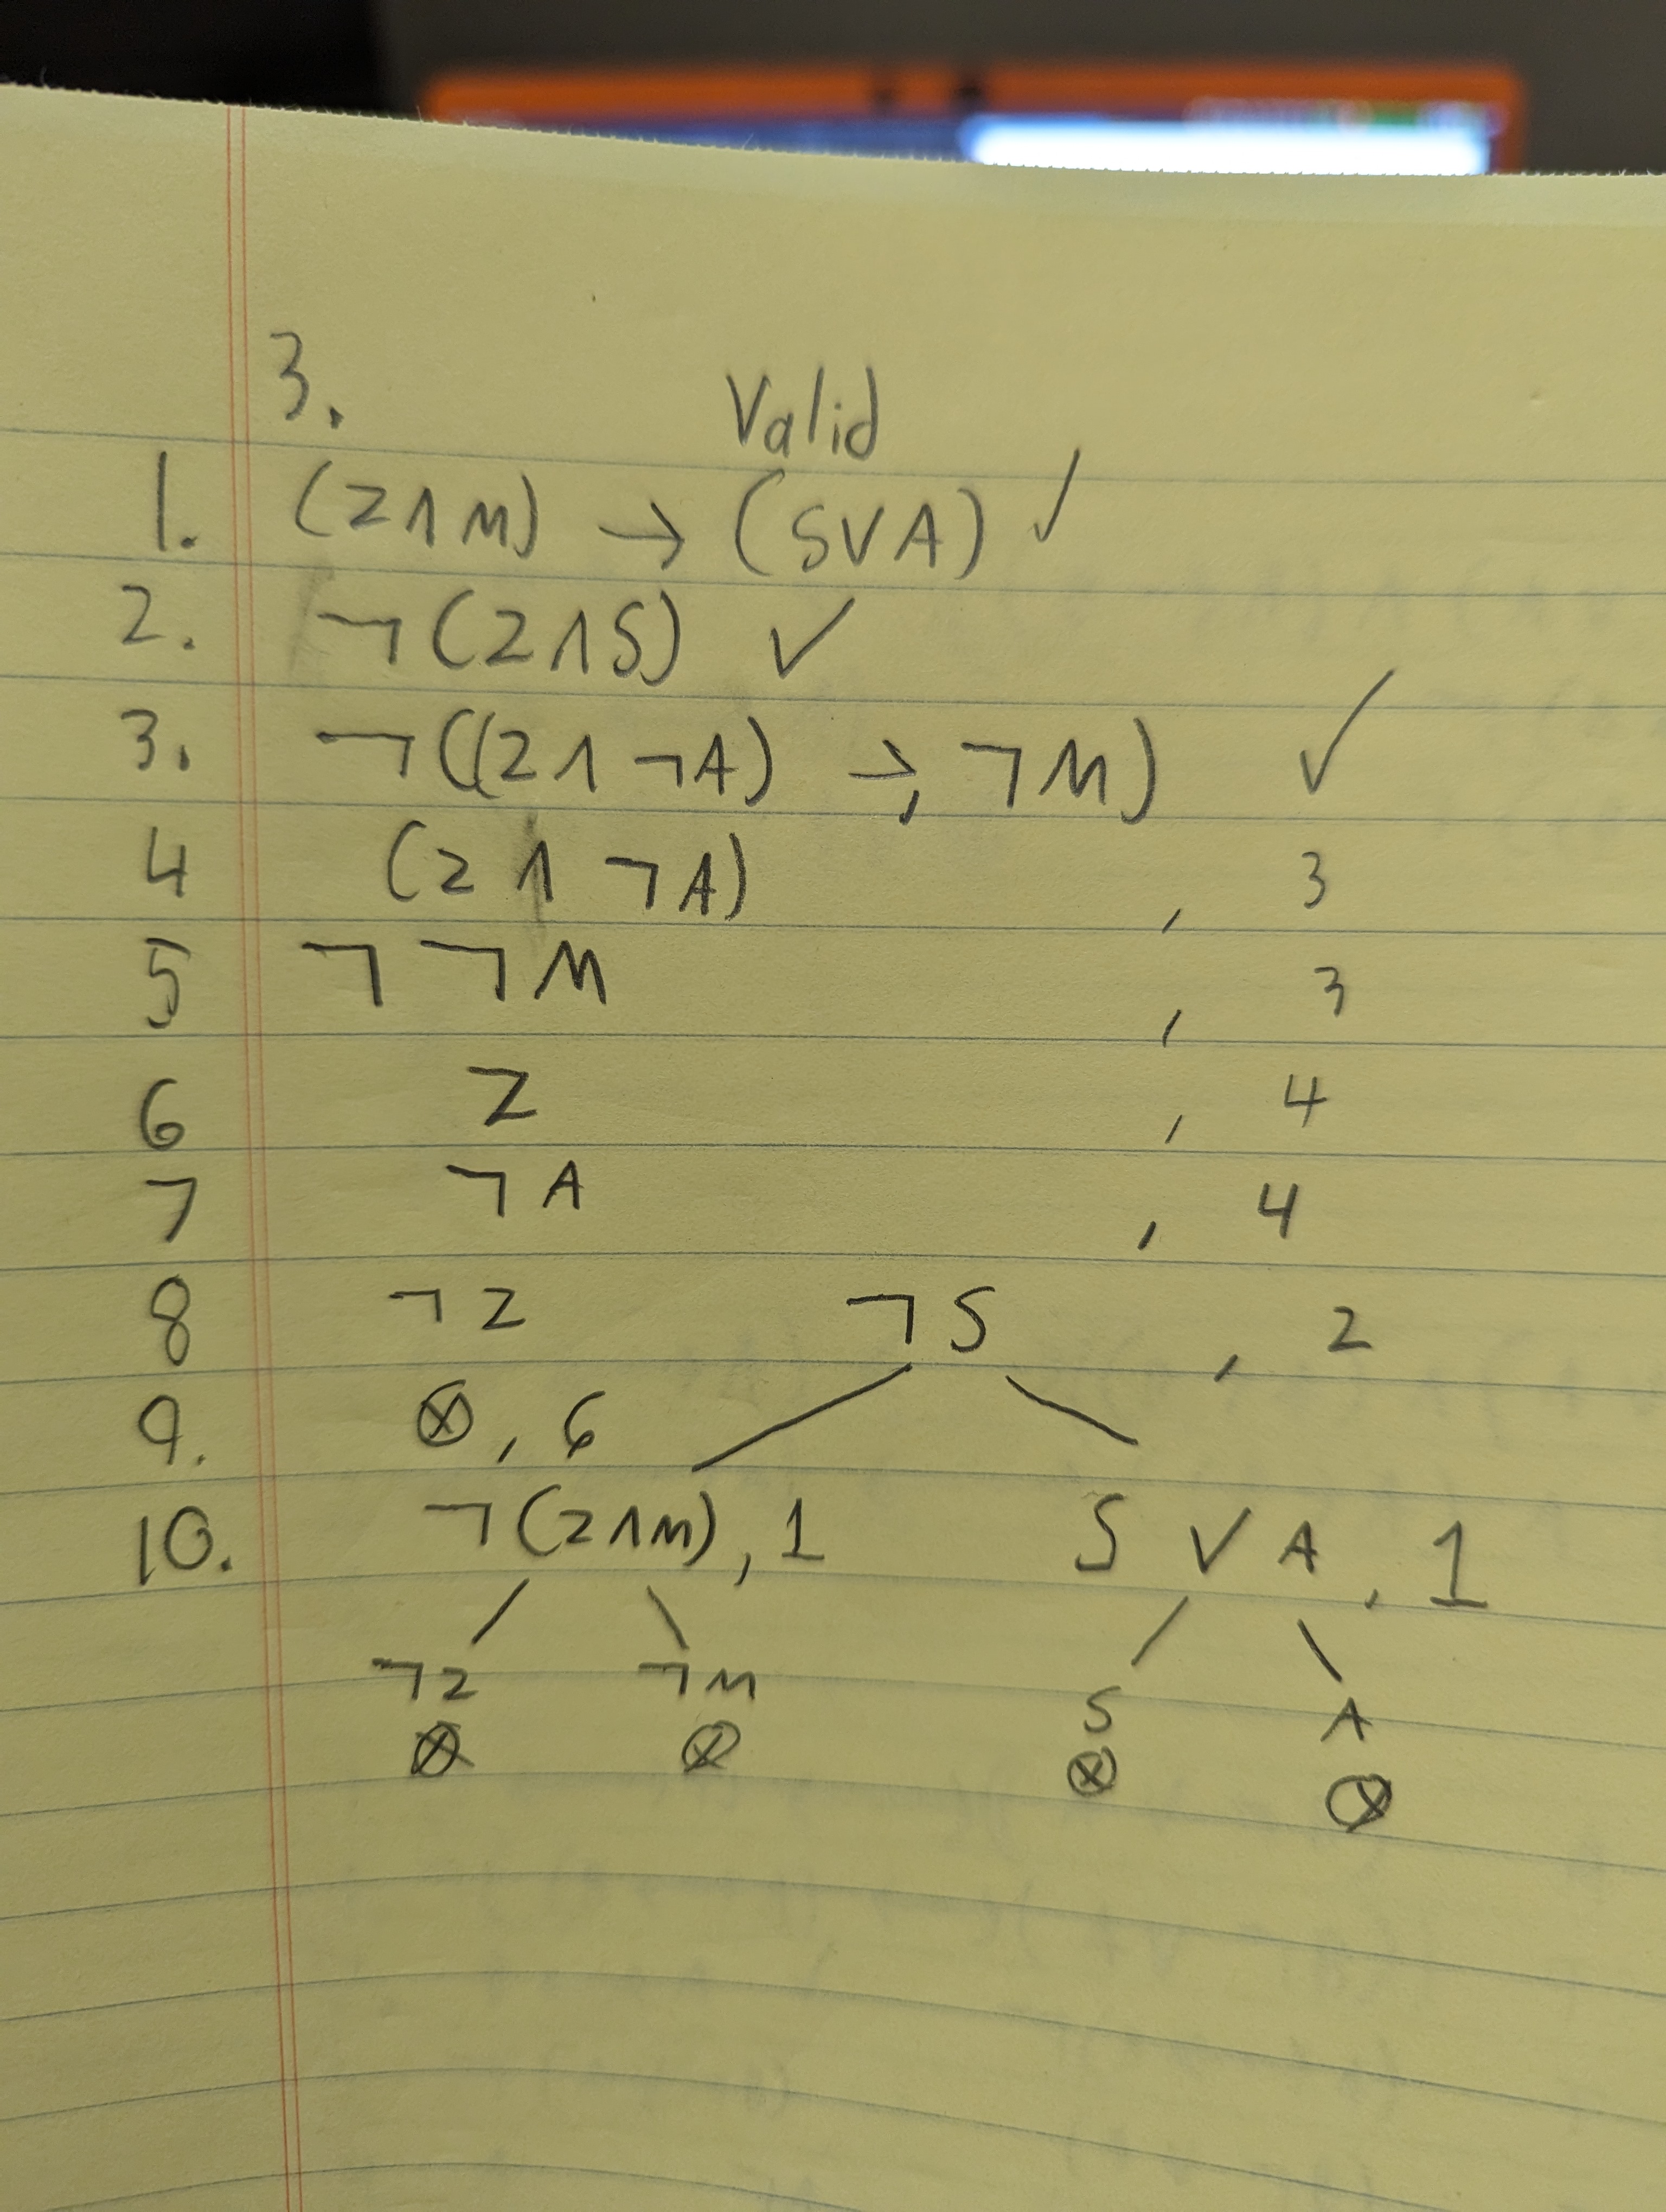 3.
Valid
1. (Z∧M) → (S∨A) ✓
2. ¬(Z∧S) ✓
3. ¬((Z∧¬A) → ¬M) ✓
4 (Z∧¬A) , 3
5 ¬¬M , 3
6 Z , 4
7 ¬A , 4
8 ¬Z ¬S , 2
9. ⊗, 6
10. ¬(Z∧M), 1 S∨A, 1
¬Z ¬M S A
⊗ ⊗ ⊗ ⊗